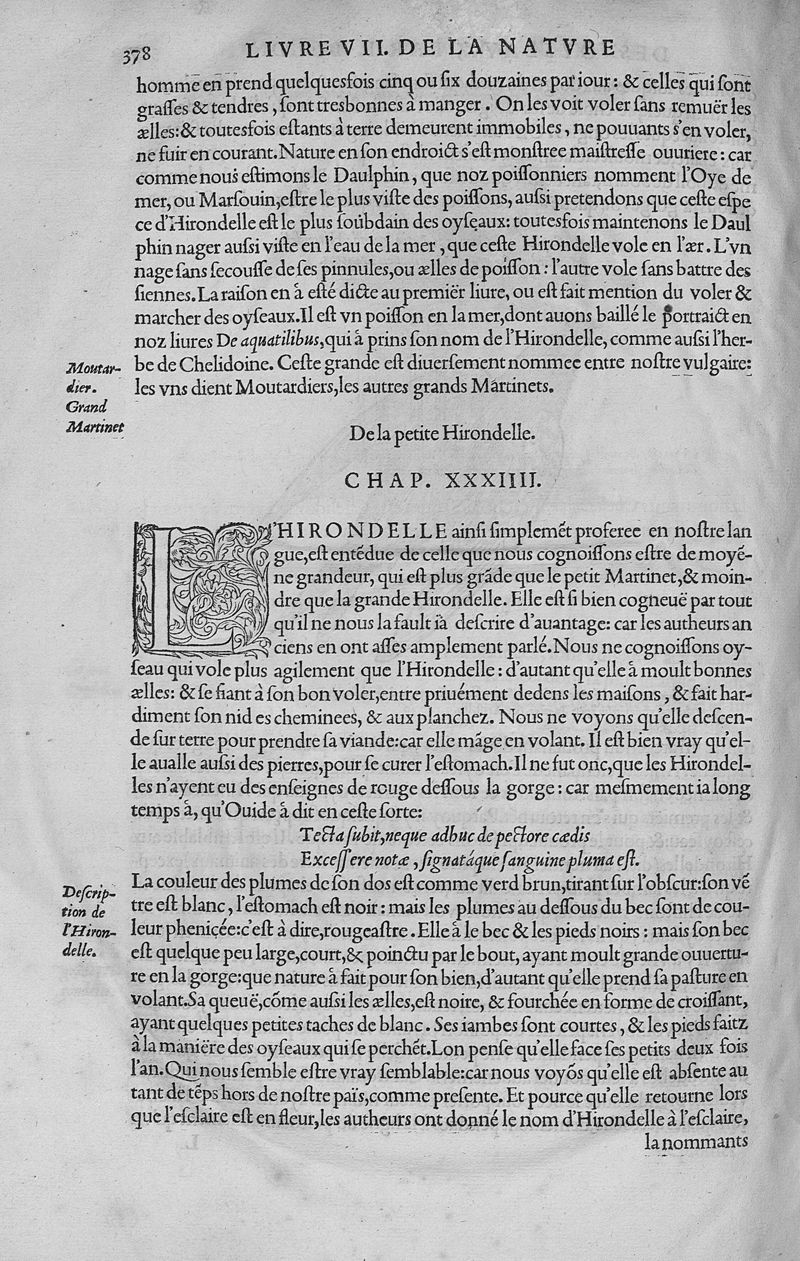 378 LIVRE VII. DE LA NATVRE
homme en prend quelquesfois cinq ou ſix douzaines par iour: & celles qui ſont
graſſes & tendres, ſont tresbonnes à manger. On les voit voler ſans remuër les
ælles:& toutesfois eſtants à terre demeurent immobiles, ne pouuants s'en voler,
ne fuir en courant. Nature en ſon endroict s'eſt monſtree maiſtreſſe ouuriere: car
comme nous eſtimons le Daulphin, que noz poiſſonniers nomment l'Oye de
mer, ou Marſouin, eſtre le plus viſte des poiſſons, auſsi pretendons que ceſte eſpe
ce d'Hirondelle eſt le plus ſoùbdain des oyſeaux: toutesfois maintenons le Daul
phin nager auſsi viſte en l'eau de la mer, que ceſte Hirondelle vole en l'ær. L'vn
nage ſans ſecouſſe de ſes pinnules, ou ælles de poiſſon: l'autre vole ſans battre des
ſiennes. La raiſon en à eſté dicte au premiër liure, ou eſt fait mention du voler &
marcher des oyſeaux. Il eſt vn poiſſon en la mer, dont auons baillé le portraict en
noz liures De aquatilibus, qui à prins ſon nom de l'Hirondelle, comme auſsi l'her-
be de Chelidoine. Ceſte grande eſt diuerſement nommee entre noſtre vulgaire:
les vns dient Moutardiers, les autres grands Martinets.
Moutar-
dier.
Grand
Martinet
De la petite Hirondelle.
CHAP. XXXIIII.
L'HIRONDELLE ainſi ſimplemẽt proferee en noſtre lan
gue, eſt entẽdue de celle que nous cognoiſſons eſtre de moyẽ-
ne grandeur, qui eſt plus grãde que le petit Martinet, & moin-
dre que la grande Hirondelle. Elle eſt ſi bien cogneuë par tout
qu'il ne nous la fault ià deſcrire d'auantage: car les autheurs an
ciens en ont aſſes amplement parlé. Nous ne cognoiſſons oy-
ſeau qui vole plus agilement que l'Hirondelle: d'autant qu'elle à moult bonnes
ælles: & ſe fiant à ſon bon voler, entre priuément dedens les maiſons, & fait har-
diment ſon nid es cheminees, & aux planchez. Nous ne voyons qu'elle deſcen-
de ſur terre pour prendre ſa viande: car elle mãge en volant. Il eſt bien vray qu'el-
le aualle auſsi des pierres, pour ſe curer l'eſtomach. Il ne fut onc, que les Hirondel-
les n'ayent eu des enſeignes de rouge deſſous la gorge: car meſmement ia long
temps à, qu'Ouide à dit en ceſte ſorte:
Tecta ſubit, neque adhuc de pectore cædis
Exceſſere notæ, ſignatáque ſanguine pluma eſt.
La couleur des plumes de ſon dos eſt comme verd brun, tirant ſur l'obſcur: ſon vẽ
tre eſt blanc, l'eſtomach eſt noir: mais les plumes au deſſous du bec ſont de cou-
leur phenicée: c'eſt à dire, rougeaſtre. Elle à le bec & les pieds noirs: mais ſon bec
eſt quelque peu large, court, & poinctu par le bout, ayant moult grande ouuertu-
re en la gorge: que nature à fait pour ſon bien, d'autant qu'elle prend ſa paſture en
volant. Sa queuë, cõme auſsi les ælles, eſt noire, & fourchée en forme de croiſſant,
ayant quelques petites taches de blanc. Ses iambes ſont courtes, & les pieds faitz
à la maniëre des oyſeaux qui ſe perchẽt. Lon penſe qu'elle face ſes petits deux fois
l'an. Qui nous ſemble eſtre vray ſemblable: car nous voyõs qu'elle eſt abſente au
tant de tẽps hors de noſtre païs, comme preſente. Et pource qu'elle retourne lors
que l'eſclaire eſt en fleur, les autheurs ont donné le nom d'Hirondelle à l'eſclaire,
Deſcrip-
tion de
l'Hiron-
delle.
la nommants